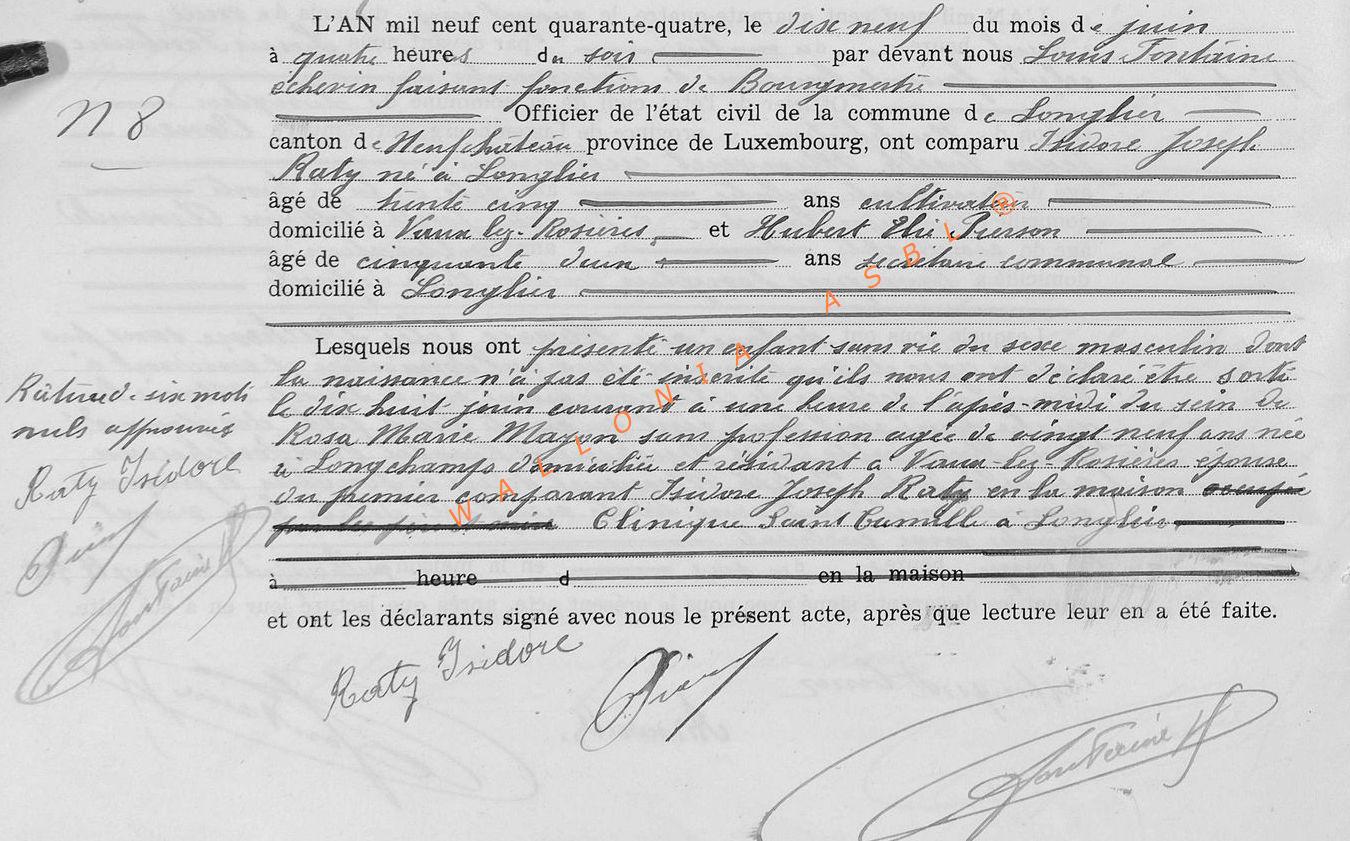 L'AN mil neuf cent quarante-quatre, le dix neuf du mois de juin
à quatre heures du soir par devant nous Louis Fontaine
échevin faisant fonctions de Bourgmestre
N 8
Officier de l'état civil de la commune de Longlier
canton de Neufchâteau province de Luxembourg, ont comparu Isidore Joseph
Raty né à Longlier
âgé de trente cinq ans cultivateur
domicilié à Vaux-lez-Rosières, et Hubert Elie Pierson
âgé de cinquante deux ans secrétaire communal
domicilié à Longlier
Lesquels nous ont présenté un enfant sans vie du sexe masculin dont
la naissance n'a pas été inscrite qu'ils nous ont déclaré être sorti
le dix huit juin courant à une heure de l'après-midi du sein de
Rosa Marie sans profession agée de vingt neuf ans née
à Longchamps domiciliée et résidant à Vaux-lez-Rosières épouse
du premier comparant Isidore Joseph Raty en la maison occupée
par les Clinique Saint Camille à Longlier
à heure d en la maison
et ont les déclarants signé avec nous le présent acte, après que lecture leur en a été faite.
Rature de six mots
nuls approuvée
Raty Isidore
Raty Isidore
WALLONIA ASBL @